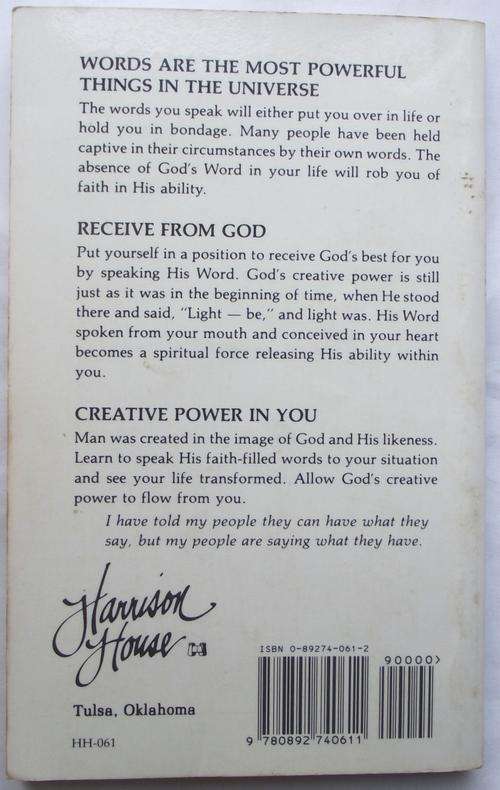 WORDS ARE THE MOST POWERFUL
THINGS IN THE UNIVERSE
The words you speak will either put you over in life or
hold you in bondage. Many people have been held
captive in their circumstances by their own words. The
absence of God's Word in your life will rob you of
faith in His ability.
RECEIVE FROM GOD
Put yourself in a position to receive God's best for you
by speaking His Word. God's creative power is still
just as it was in the beginning of time, when He stood
there and said, "Light — be," and light was. His Word
spoken from your mouth and conceived in your heart
becomes a spiritual force releasing His ability within
you.
CREATIVE POWER IN YOU
Man was created in the image of God and His likeness.
Learn to speak His faith-filled words to your situation
and see your life transformed. Allow God's creative
power to flow from you.
I have told my people they can have what they
say, but my people are saying what they have.
Harrison
House
Tulsa, Oklahoma
HH-061
ISBN 0-89274-061-2
90000>
9 780892 740611